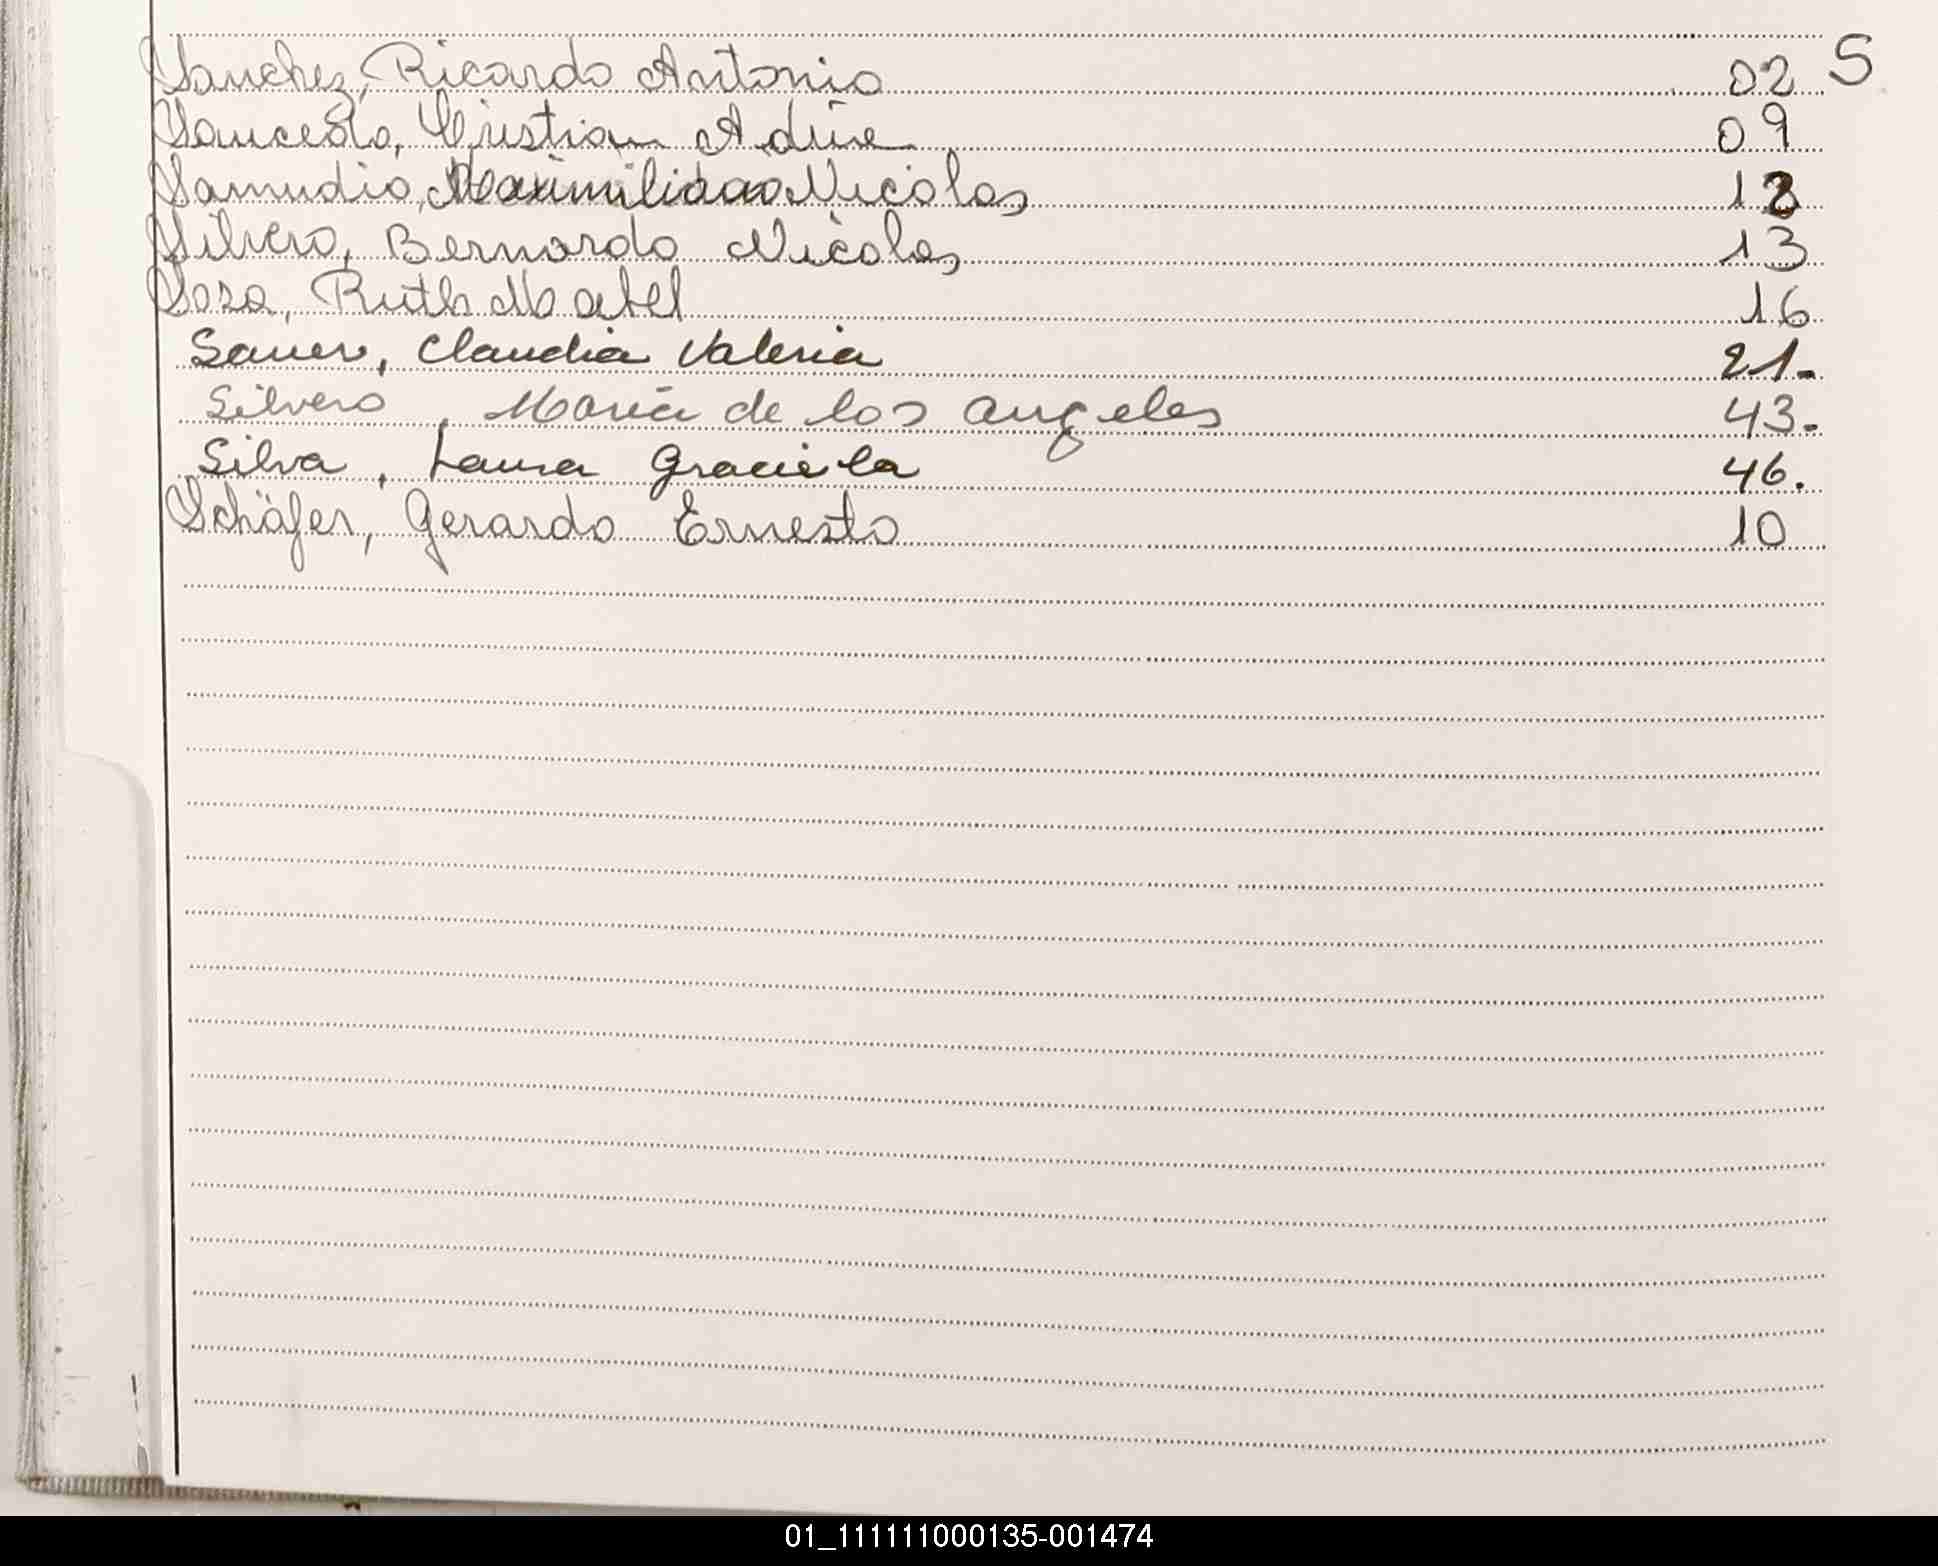 Sanchez, Ricardo Antonio 02 S
Saucedo, Cristian 09
Samudio, Maximiliano Nicolas 12
Silvero, Bernardo Nicolas 13
Sosa, Ruth Mabel 16
Sauer, Claudia Valeria 21.
Silvero, María de los angeles 43.
Silva, Laura Graciela 46.
Schäfer, Gerardo Ernesto 10
01_111111000135-001474